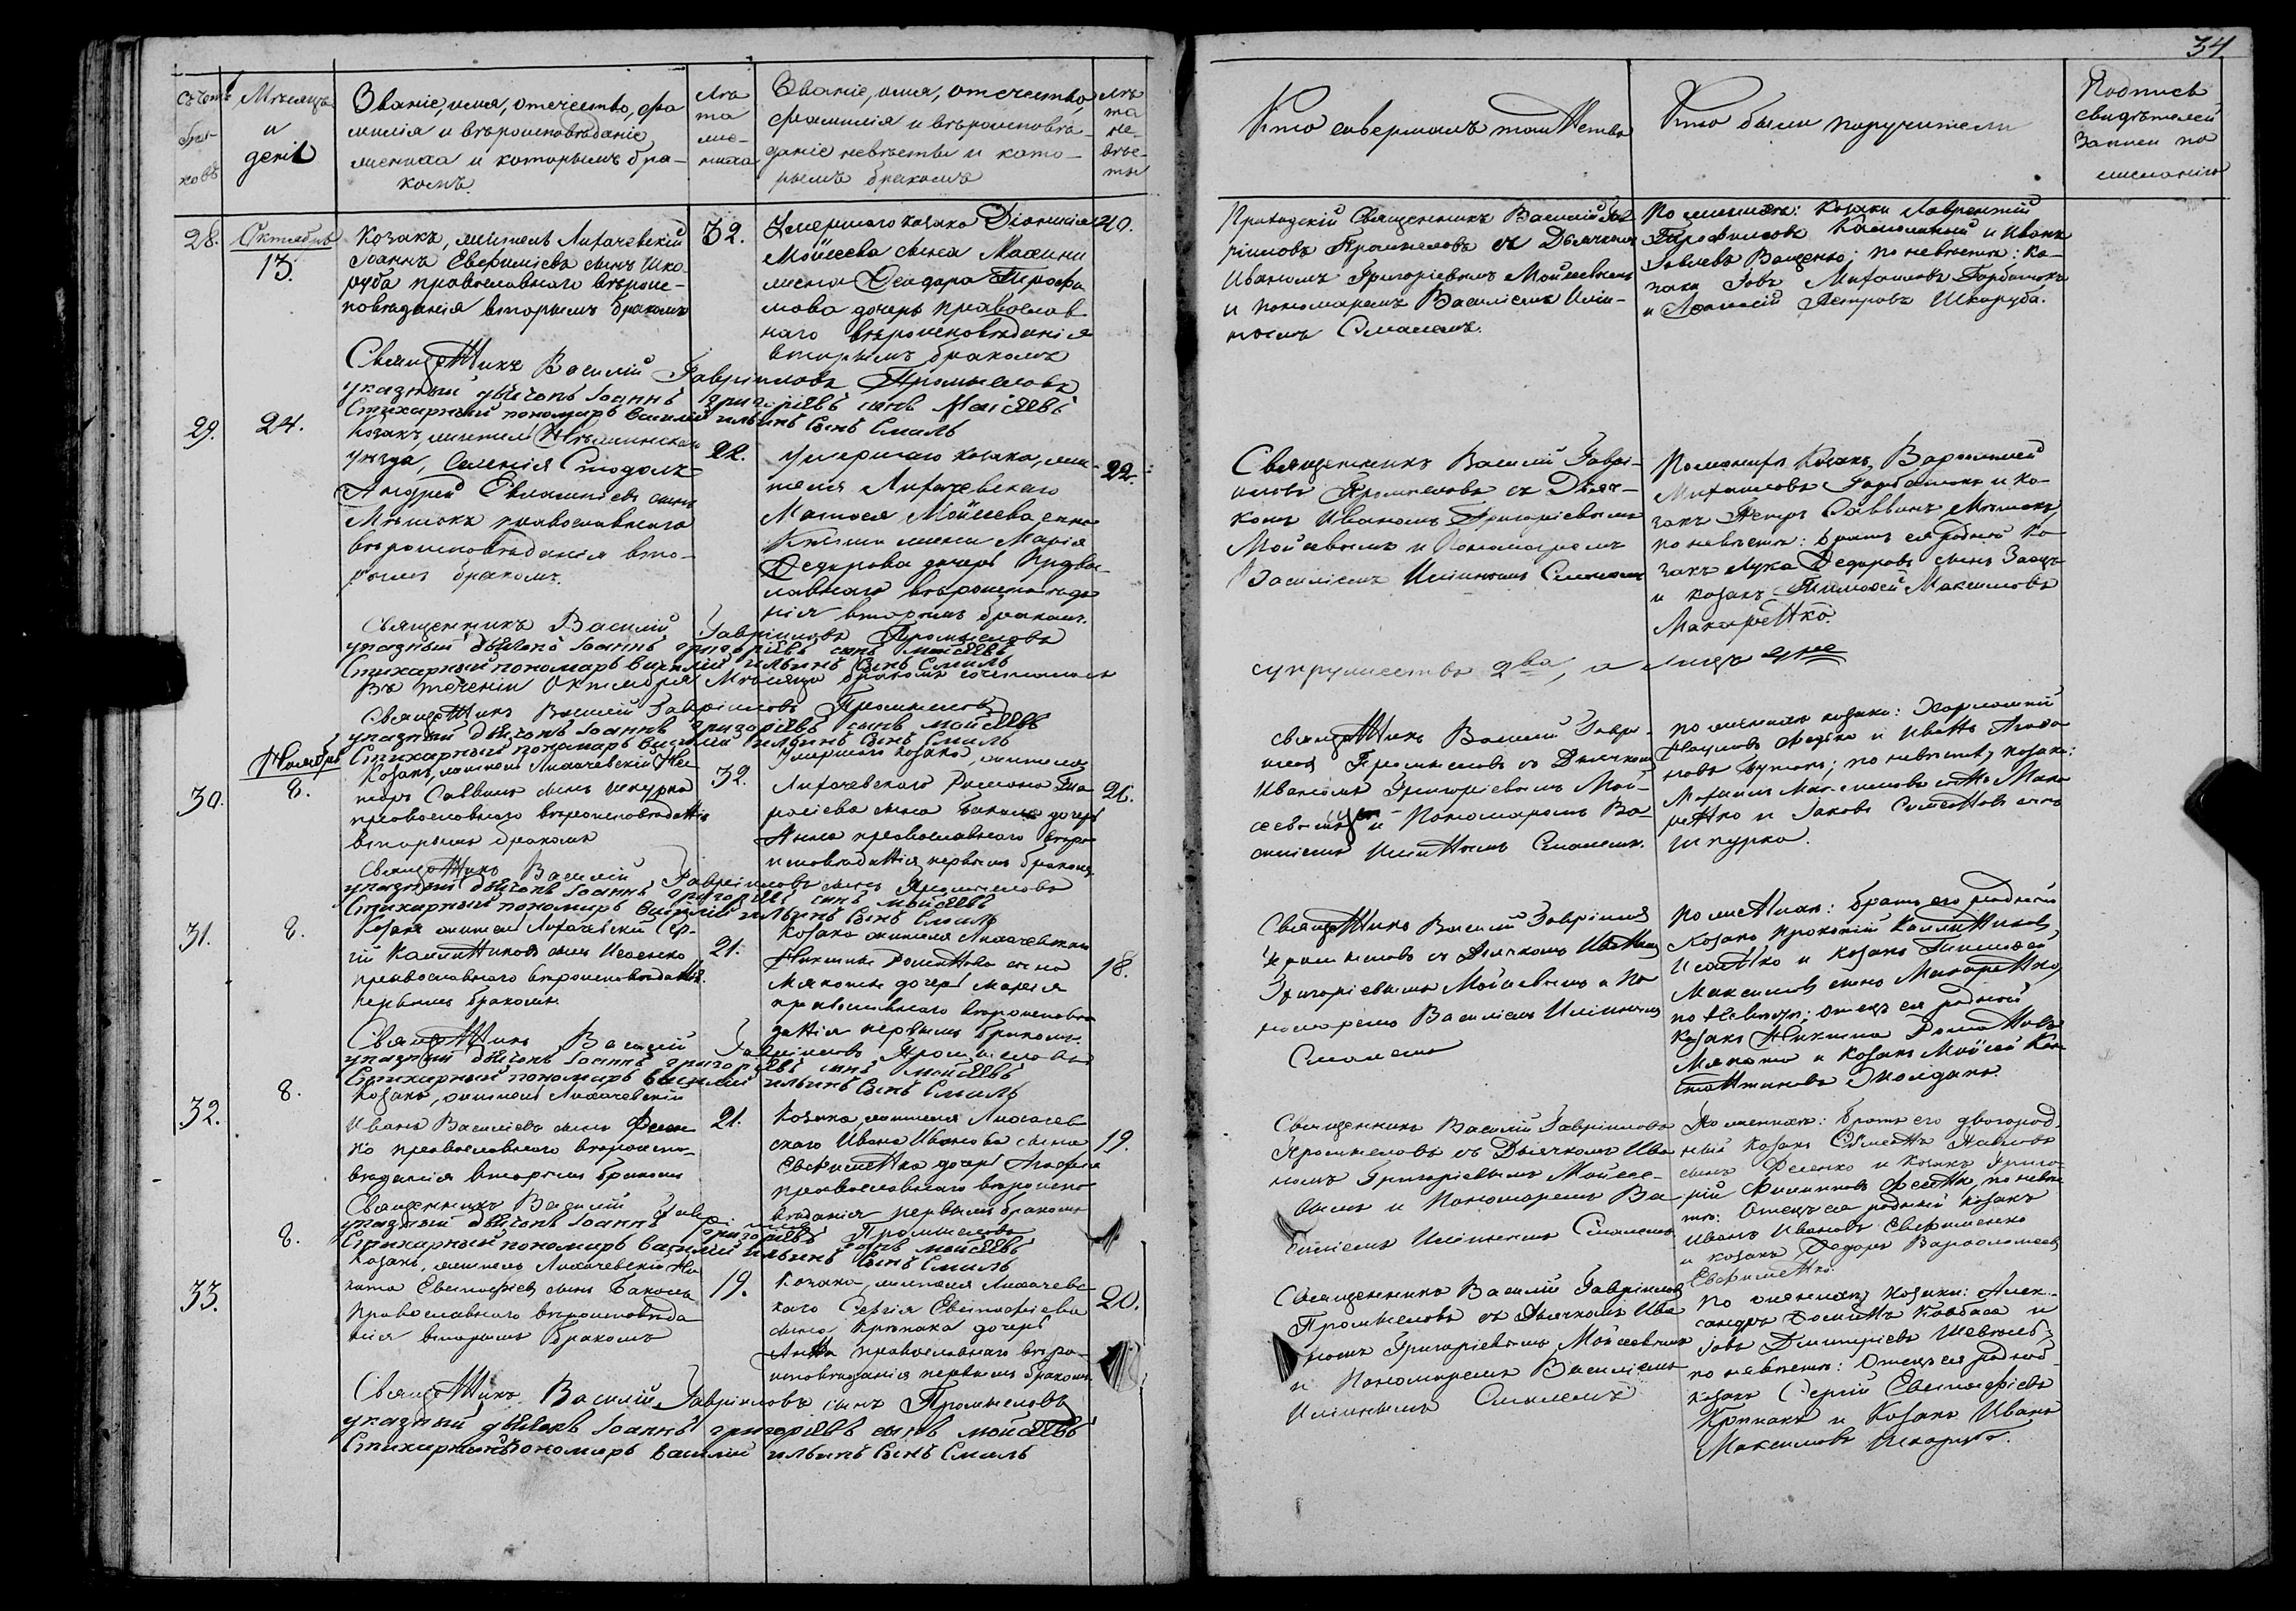 34
Счетъ браковъ
Мѣсяцъ и день
Званіе, имя, отечество, фа
милія и вѣроисповѣданіе
жениха и которымъ бра-
комъ.
Лѣ
та
же-
ниха
Званіе, имя, отечество,
фамилія и вѣроисповѣ-
даніе невѣсты и кото-
рымъ бракомъ
Лѣ
та
не-
вѣс-
ты
Кто совершалъ таинство
Кто были поручители
Подпись
свидѣтелей
записи по
желанію
28.
Октябрь
13.
Козакъ, житель Лихачевскій
Іоаннъ Евфиміевъ сынъ Шка-
руба православнаго вѣроис-
повѣданія вторымъ бракомъ
32.
Умершаго козака Діонисія
Мойсеева сына
жена Феодора Трофи
мова дочерь православ
наго вѣроисповѣданія
вторымъ бракомъ
40.
Приходскій Священникъ Василій Гав
ріиловъ Промысловъ съ Дьячкомъ
Иваномъ Григоріевымъ Мойсеевымъ
и пономаремъ Василіемъ Ильи-
нымъ Смалемъ.
По женихѣ: козаки Лаврентій
Трофимовъ и Иванъ
Іовлевъ Ващенко; по невѣстѣ: ко-
заки Іовъ Михаиловъ Горбатокъ
и Петровъ Шкаруба.
Священникъ Василій Гавріиловъ Промысловъ
указный дьячокъ Іоаннъ григоріевъ сынъ Мойсеевъ
Стихарный пономарь василій ильинъ сынъ Смаль
29.
24.
Козакъ, житель Нѣжинскаго
уѣзда, селенія Стодолъ
Андрей Евлампіевъ сынъ
православнаго
вѣроисповѣданія вто-
рымъ бракомъ.
22.
Умершаго козака, жи-
теля Лихачевскаго
Матвея Мойсеева сына
жена Марія
Федорова дочерь Право-
славнаго вѣроисповѣда
нія вторымъ бракомъ.
22.
Священникъ Василій Гаврі-
иловъ Промысловъ съ Дьяч-
комъ Иваномъ Григоріевымъ
Мойсеевымъ и Пономаремъ
Василіемъ Ильинымъ Смалемъ
По женихѣ Козакъ
Михаиловъ Горбатокъ и ко-
закъ Петръ Саввинъ
по невѣстѣ: братъ ея родной ко-
закъ Лука Федоровъ сынъ Заецъ
и козакъ Тимофей Максимовъ
Макаренко.
Священникъ Василій Гавріиловъ Промысловъ
указный дьячокъ Іоаннъ григоріевъ сынъ мойсеевъ
Стихарный пономарь василій ильинъ сынъ Смаль
Въ теченіи Октября мѣсяца бракомъ сочеталось
супружества 2ва, а лицъ 4ре
Священникъ Василій Гавріиловъ Промысловъ
указный дьячокъ Іоаннъ григоріевъ сынъ мойсеевъ
Стихарный пономарь василій ильинъ сынъ Смаль
30.
Ноябрь
8.
Козакъ, житель Лихачевскій Нес-
торъ Саввинъ сынъ Шкурко
православнаго вѣроисповѣданія
вторымъ бракомъ
32.
Умершаго козака, жителя
Лихачевскаго Романа Та
расіева сына дочерь
Анна православнаго вѣро
исповѣданія первымъ бракомъ
Священникъ Василій Гаврі-
иловъ Промысловъ съ Дьячкомъ
Иваномъ Григоріевымъ Мой-
сеевымъ и Пономаремъ Ва-
силіемъ Ильинымъ Смалемъ.
По женихѣ козаки: Харлампій
Федько и Иванъ
по невѣстѣ, козаки:
Михаилъ Максимовъ сынъ Мака
ренко и Іаковъ Симеоновъ сынъ
Шкурко.
Священникъ Василій Гавріиловъ сынъ Промысловъ
указный дьячокъ Іоаннъ григоріевъ сынъ мойсеевъ
Стихарный пономарь василій ильинъ сынъ Смаль
31.
8.
Козакъ житель Лихачевскій Сер-
гій Каллиниковъ сынъ Исаенко
православнаго вѣроисповѣданія
первымъ бракомъ.
21.
Козака жителя Лихачевскаго
Никиты Романова сына
Мякоты дочерь Марія
православнаго вѣроисповѣ
данія первымъ бракомъ.
18.
Священникъ Василій Гавріиловъ
Промысловъ съ Дьячкомъ Иваномъ
Григоріевымъ Мойсеевымъ и По
номаремъ Василіемъ Ильинымъ
Смалемъ
По женихѣ: братъ его родной
Козакъ Прокопій Каллиниковъ
Исаенко и козакъ Тимофей
Максимовъ сынъ Макаренко,
по невѣстѣ: отецъ ея родной
козакъ Никита Романовъ
Мякота и козакъ Мойсей Кон
стантиновъ
Священникъ Василій Гавріиловъ Промысловъ
указный дьячокъ Іоаннъ григоріевъ сынъ мойсеевъ
Стихарный пономарь василій ильинъ сынъ Смаль
32.
8.
Козакъ, житель Лихачевскій
Иванъ Василіевъ сынъ Фесен
ко православнаго вѣроиспо-
вѣданія вторымъ бракомъ
21.
Козака, жителя Лихачев
скаго Ивана Иванова сына
Евфименка дочерь Агафія
православнаго вѣроиспо
вѣданія первымъ бракомъ
19.
Священникъ Василій Гавріиловъ
Промысловъ съ Дьячкомъ Ива
номъ Григоріевымъ Мойсее-
вымъ и Пономаремъ Ва-
силіемъ Ильинымъ Смалемъ
По женихѣ: братъ его двоюрод
ный козакъ Симеонъ Павловъ
сынъ Фесенко и козакъ Григо-
рій Филиповъ по невѣс
тѣ: Отецъ ея родный козакъ
Иванъ Ивановъ Евфименко
и козакъ Федоръ Варфоломеевъ
Евфименко.
Священникъ Василій Гавріиловъ Промысловъ
указный дьячокъ Іоаннъ григоріевъ сынъ мойсеевъ
Стихарный пономарь василій ильинъ сынъ Смаль
33.
8.
Козакъ, житель Лихачевскій Ни
кита Евстафіевъ сынъ
православнаго вѣроисповѣда
нія вторымъ бракомъ
19.
Козака, жителя Лихачевс-
каго Сергія Евстафіева
сына Крупака дочерь
Анна православнаго вѣро-
исповѣданія первымъ бракомъ.
20.
Священникъ Василій Гавріиловъ
Промысловъ съ Дьячкомъ Ива
номъ Григоріевымъ Мойсеевымъ
и Пономаремъ Василіемъ
Ильинымъ Смалемъ
По женихѣ козаки: Алек-
сандръ Ковбаса и
Іовъ Дмитріевъ
по невѣстѣ: Отецъ ея родной
козакъ Сергій Евстафіевъ
Крупакъ и Козакъ Иванъ
Максимовъ Шкаруба.
Священникъ Василій Гавріиловъ сынъ Промысловъ
указный дьячокъ Іоаннъ григоріевъ сынъ мойсеевъ
Стихарный пономарь василій ильинъ сынъ Смаль